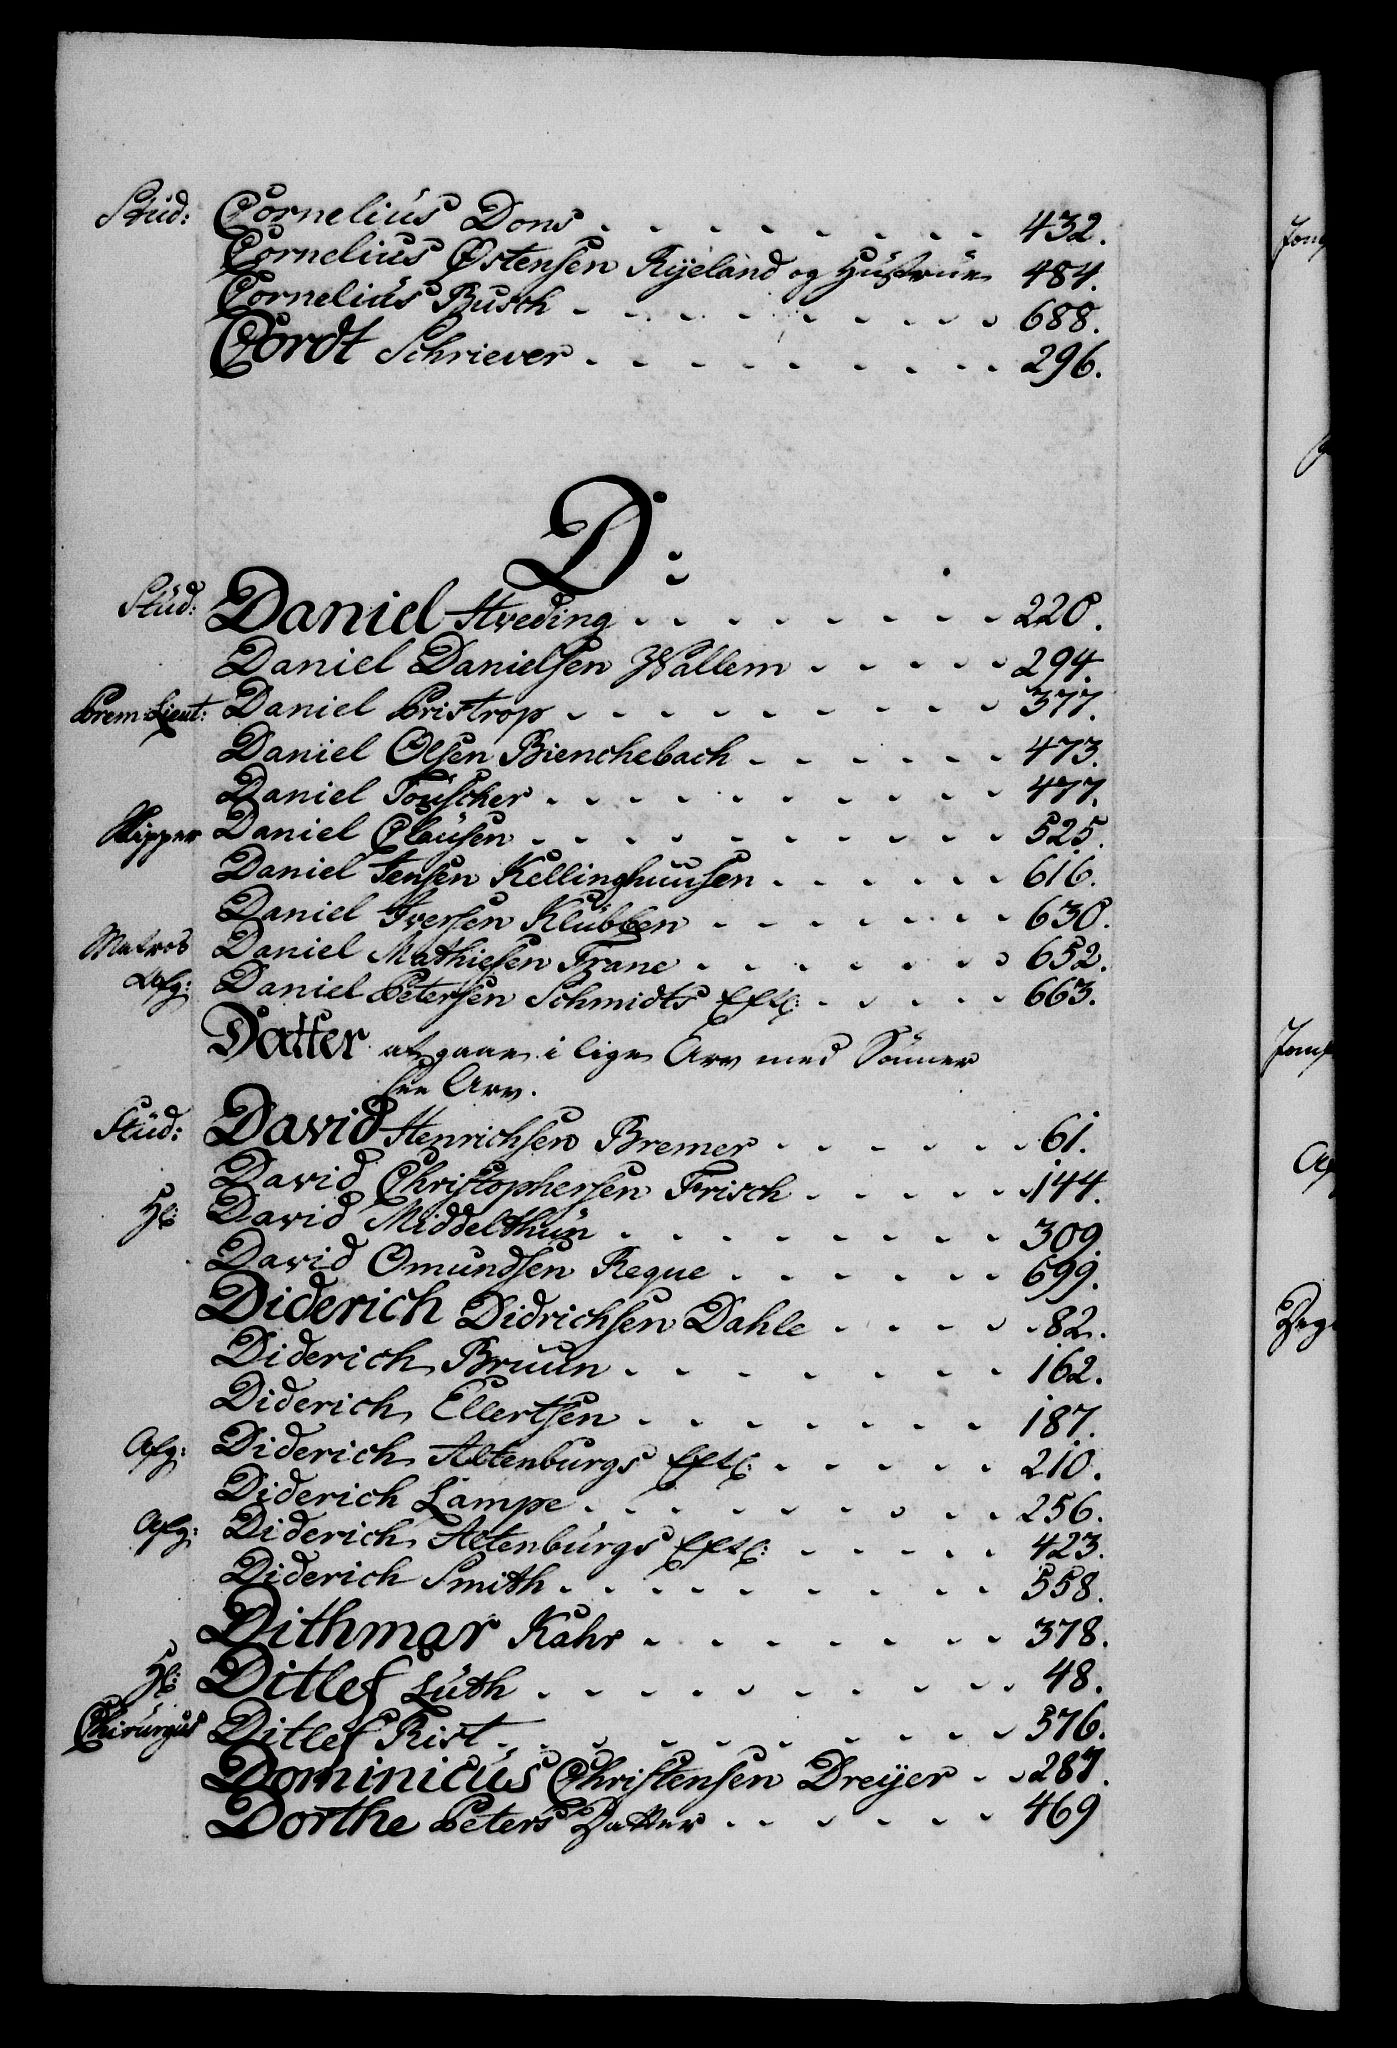 Stud: Cornelius Dons - - - - - - - - 432.
Cornelius Østensen Rÿeland og Hustrue 484.
Cornelius Busch - - - - - - - - - 688.
Cordt Schriever - - - - - - - - - 296.
D:
Stud: Daniel Hveding - - - - - - - - 220.
Daniel Danielsen Wallem - - - - - 294.
Prem: Lieut: Daniel Pristrop - - - - - - - - - 377.
Daniel Olsen Bienchebach - - - - - - 473.
Daniel Touscher - - - - - - - - - - 477.
Skipper Daniel Clausen - - - - - - - - - - 525.
Daniel Jensen Kellinghuusen - - - - - - 616.
Daniel Iversen Klübben - - - - - - - 630.
Matros Daniel Mathiesen Trane - - - - - - - 652.
Afg: Daniel Petersen Schmidts Eftl: - - - - - 663.
Datter at gaae i lige Arv med Sönner
see Arv.
Stud: David Henrichsen Bremer - - - - - - 61.
David Christophersen Frisch - - - - - 144.
Hl: David Middelthun - - - - - - - - - 309.
David Omundsen Reque - - - - - - 699.
Diderich Didrichsen Dahle - - - - - 82.
Diderich Bruun - - - - - - - - 162.
Diderich Ellertsen - - - - - - - - 187.
Afg: Diderich Altenburgs Eftl: - - - - - 210.
Diderich Lampe - - - - - - - - - 256.
Afg: Diderich Altenburgs Eftl: - - - - - 423.
Diderich Smith - - - - - - - - - - 558.
Dithmar Kahrs - - - - - - - - 378.
Hl: Ditlef Luth - - - - - - - - - - - 48.
Chirurgus Ditlef Rist - - - - - - - - - - 576.
Dominicus Christensen Dreÿer - - 287.
Dorthe Peters Datter - - - - - - 469